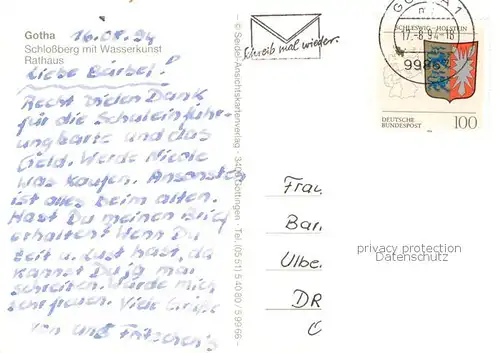 Gotha
16.08.94
Schloßberg mit Wasserkunst
Rathaus
Liebe Bärbel!
Recht vielen Dank
für die Schuleinführ-
ungkarte und das
Geld. Werde Nicole
was kaufen. Ansonsten
ist alles beim alten.
Hast Du meinen Brief
erhalten? Wenn Du
Zeit u. Lust hast, da
kannst Du ja mal
schreiben. Würde mich
sehr freuen. Viele Grüße
von uns Fritschen's
© Seidel Ansichtskartenverlag · 3400 Göttingen · Tel. (05 51) 5 40 82 / 5 99 66
Schreib mal wieder.
GOTHA 1
17.-8.94-18
9986
SCHLESWIG-HOLSTEIN
DEUTSCHE
BUNDESPOST
100
Frau
Bar
Ulbe
DR
privacy protection
Datenschutz